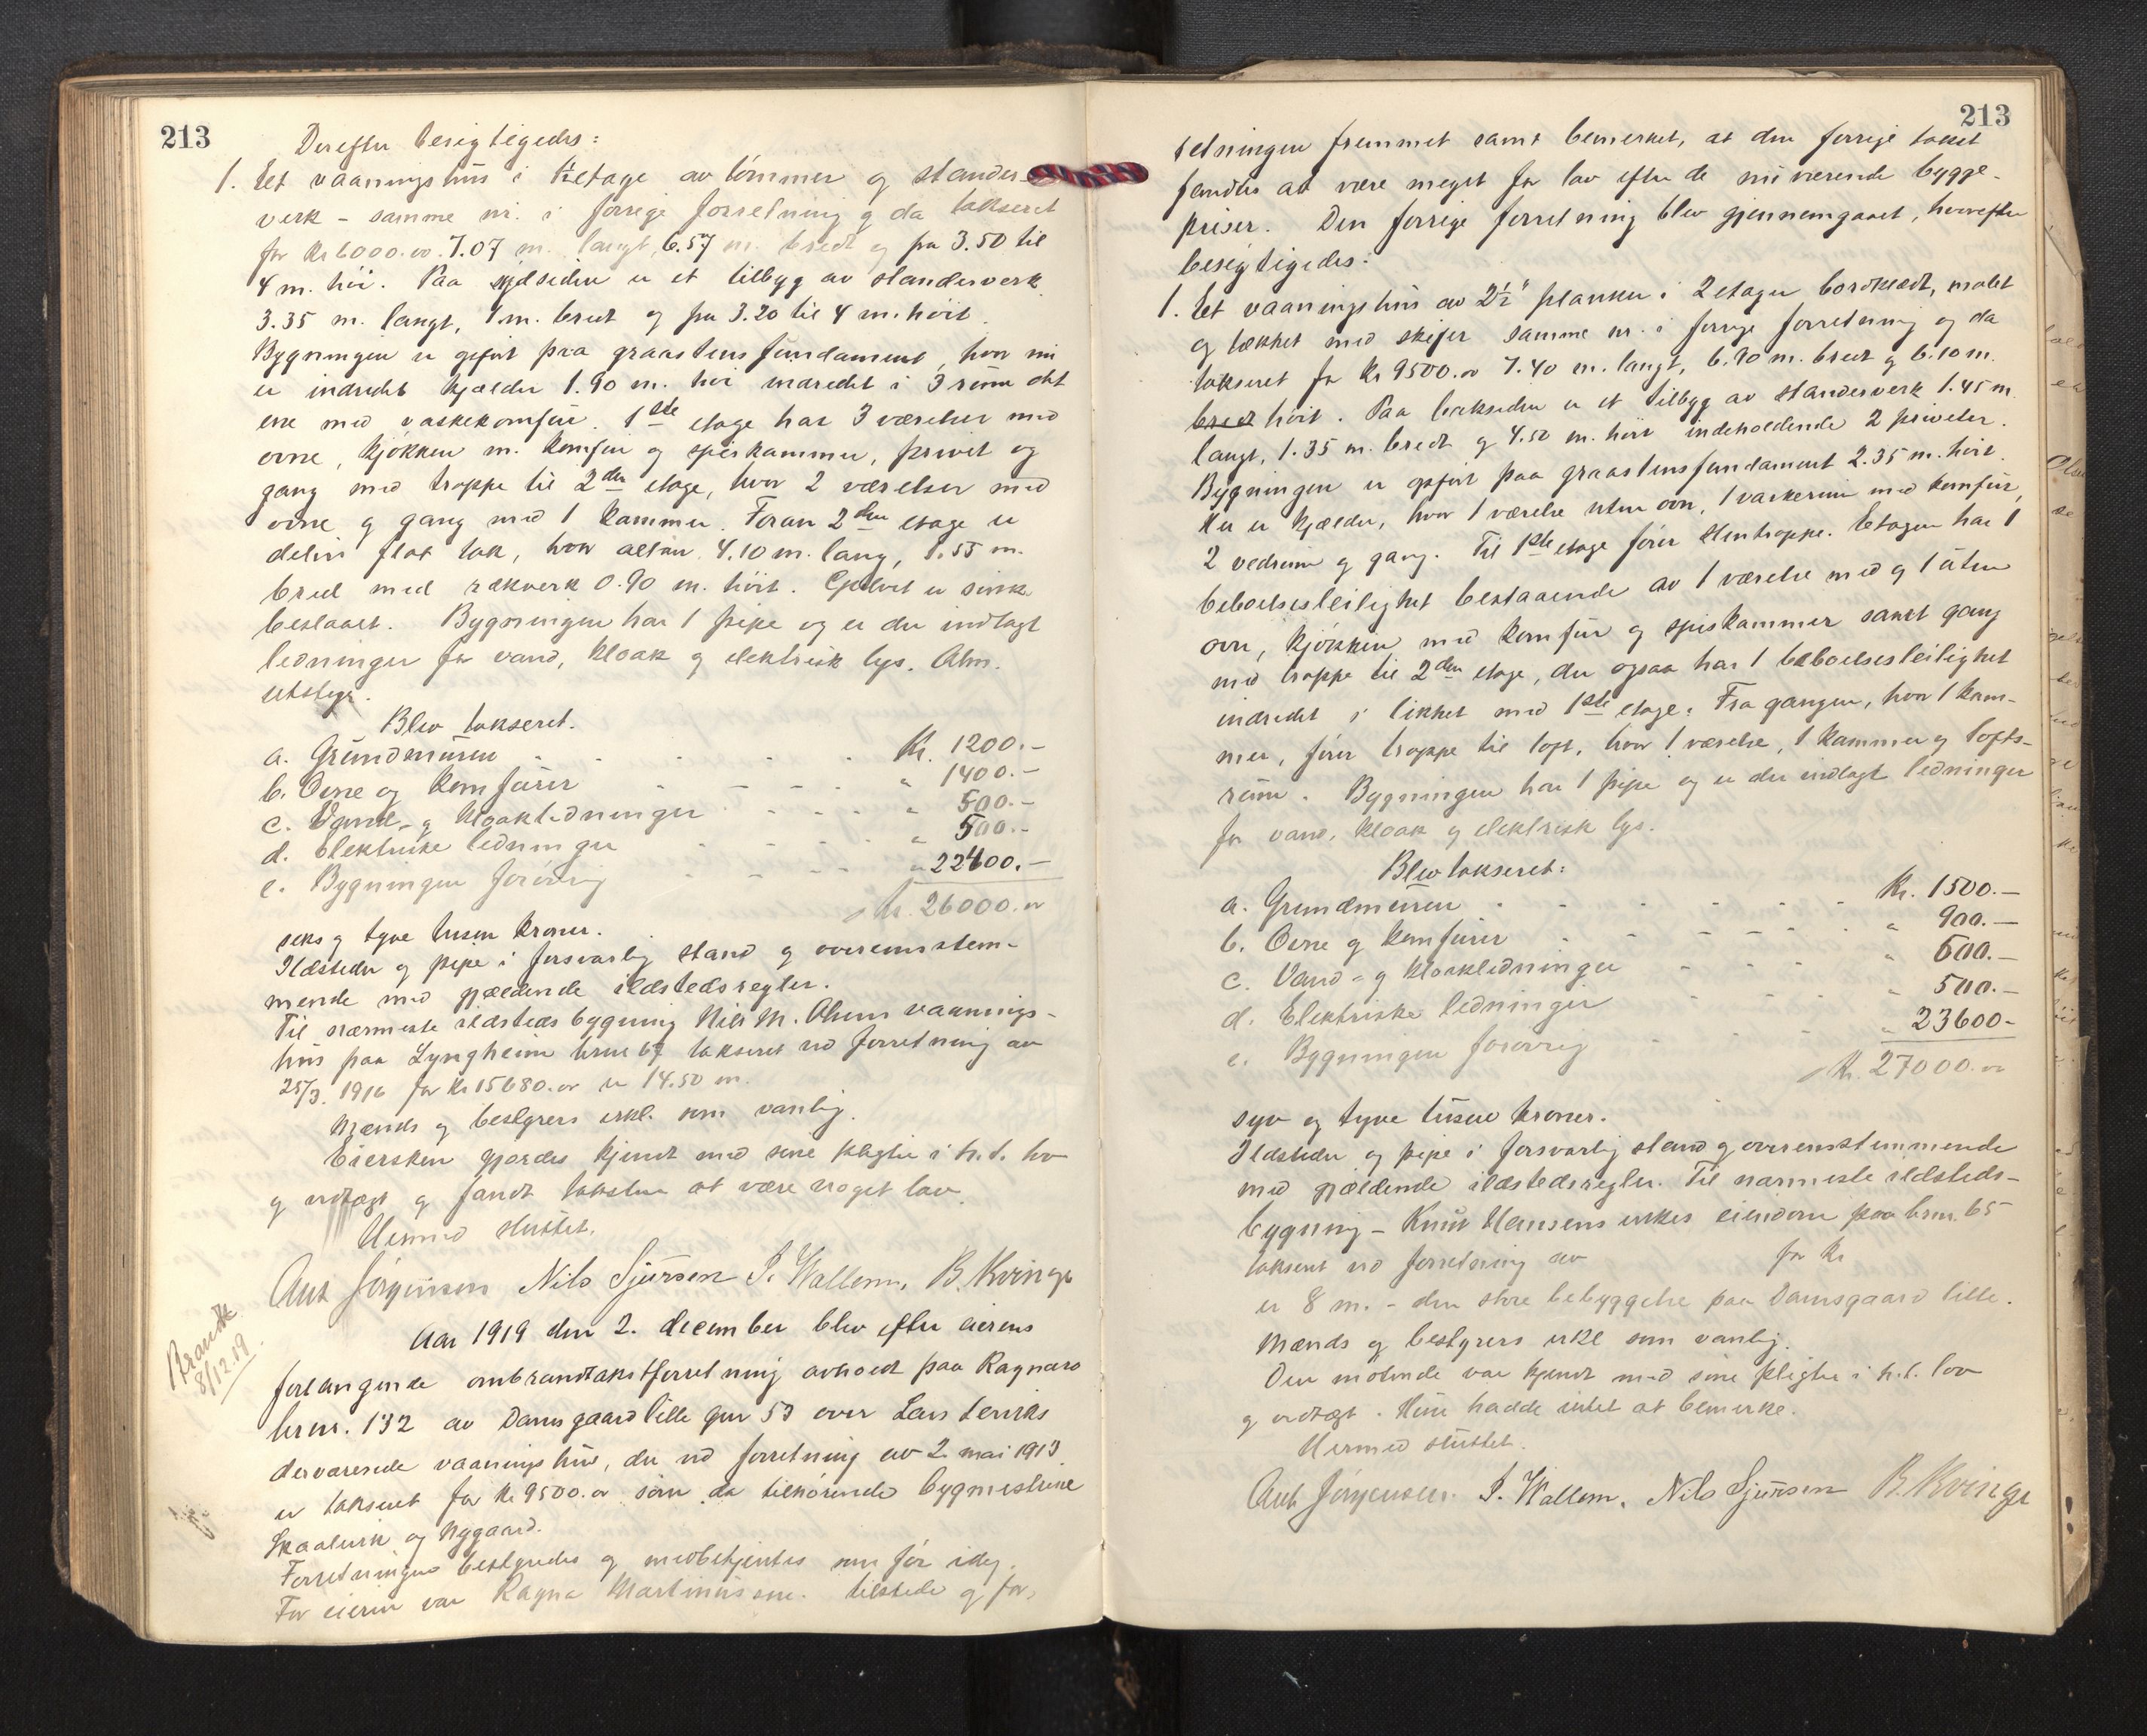 213
Derefter besigtigedes:
1. Et vaaningshus i 1½ etage av tømmer og stander-
verk – samme nr. i forrige forretning og da takseret
for Kr 6000.00. 7.07 m. langt, 6.57 m. bredt og fra 3.50 til
4 m. høi. Paa sydsiden er et tilbyg av standerverk
3.35 m. langt, 1 m. bredt og fra 3.20 til 4 m. høit.
Bygningen er opført paa graastensfundament, hvor nu
er indredet kjælder 1.90 m. høi indredet i 3 rum det
ene med vaskekomfur. 1ste etage har 3 værelser med
ovne, kjøkken m. komfur og spiskammer, privet og
gang med trappe til 2den etage, hvor 2 værelser med
ovne og gang med 1 kammer. Foran 2den etage er
delvis flat tak, hvor altan 4.10 m. lang, 1.55 m.
bred med rækverk 0.90 m. høit. Gulvet er sink
beslaaet. Bygningen har 1 pipe og er der indlagt
ledninger for vand, kloak og elektrisk lys. Alm.
utstyr.
Blev takseret.
a. Grundmuren Kr. 1200.–
b. Ovne og komfurer " 1400.–
c. Vand- og kloakledninger " 500.–
d. Elektriske ledninger " 500.–
e. Bygningen forøvrig " 22400.–
Kr. 26000.00
seks og tyve tusen kroner.
Ildsteder og pipe i forsvarlig stand og overensstem-
mende med gjældende ildstedsregler.
Til nærmeste ildstedsbygning Nils M. Olsens vaanings-
hus paa Lyngheim brnr 67 takseret ved forretning av
25/3. 1916 for Kr 15680.00 er 14.50 m.
Mænds og bestyrers erkl. som vanlig.
Eiersken gjordes kjendt med sine pligter i h.t. lov
og vedtægt og fandt taksten at være noget lav.
Hermed sluttet.
Ant Jørgensen Nils Sjursen I. Wallem. B. Kvinge
Brandtk.
8/12.19.
Aar 1919 den 2. december blev efter eierens
forlangende ombrandtakstforretning avholdt paa Ragnaro
brnr. 132 av Damsgaard lille gnr 53 over Lars Lerviks
derværende vaaningshus, der ved forretning av 2 mai 1913
er takseret for Kr 9500.00 som da tilhørende bygmestrene
Skaalevik og Nygaard.
Forretningen bestyredes og medbetjentes som før idag.
For eieren var Ragna Martinussen tilstede og for-
213
retningen fremmet samt bemerket, at den forrige takst
fandtes at være meget for lav efter de nuværende bygge-
priser. Den forrige forretning blev gjennemgaaet, hvorefter
besigtigedes:
1. Et vaaningshus av 2½" planker i 2 etager bordklædt, malet
og tækket med skifer samme nr. i forrige forretning og da
takseret for Kr 9500.00 7.40 m. langt, 6.90 m. bredt og 6.10 m.
bredt høit. Paa baksiden er et tilbyg av standerverk 1.45 m.
langt, 1.35 m. bredt og 4.50 m. høit indeholdende 2 priveter.
Bygningen er opført paa graastensfundament 2.35 m. høit.
Her er kjælder, hvor 1 værelse uten ovn, 1 vaskerum med komfur,
2 vedrum og gang. Til 1ste etage fører stentrappe. Etagen har 1
beboelsesleilighet bestaaende av 1 værelse med og 1 uten
ovn, kjøkken med komfur og spiskammer samt gang
med trappe til 2den etage, der ogsaa har 1 beboelsesleilighet
indredet i likhet med 1ste etage. Fra gangen, hvor 1 kam-
mer, fører trappe til loft, hvor 1 værelse, 1 kammer og lofts-
rum. Bygningen har 1 pipe og er der indlagt ledninger
for vand, kloak og elektrisk lys.
Blev takseret:
a. Grundmuren Kr. 1500.–
b. Ovne og komfurer " 900.–
c. Vand- og kloakledninger " 500.–
d. Elektriske ledninger " 500.–
e. Bygningen forøvrig " 23600–
Kr. 27000.00
syv og tyve tusen kroner.
Ildsteder og pipe i forsvarlig stand og overensstemmende
med gjældende ildstedsregler. Til nærmeste ildsteds-
bygning – Knut Hansens enkes eiendom paa brnr. 65
takseret ved forretning av for Kr
er 8 m. – den store bebyggelse paa Damsgaard lille.
Mænds og bestyrers erkl som vanlig.
Den møtende var kjendt med sine pligter i h.t. lov
og vedtægt. Hun hadde intet at bemerke.
Hermed sluttet.
Ant Jørgensen. I. Wallem. Nils Sjursen B. Kvinge